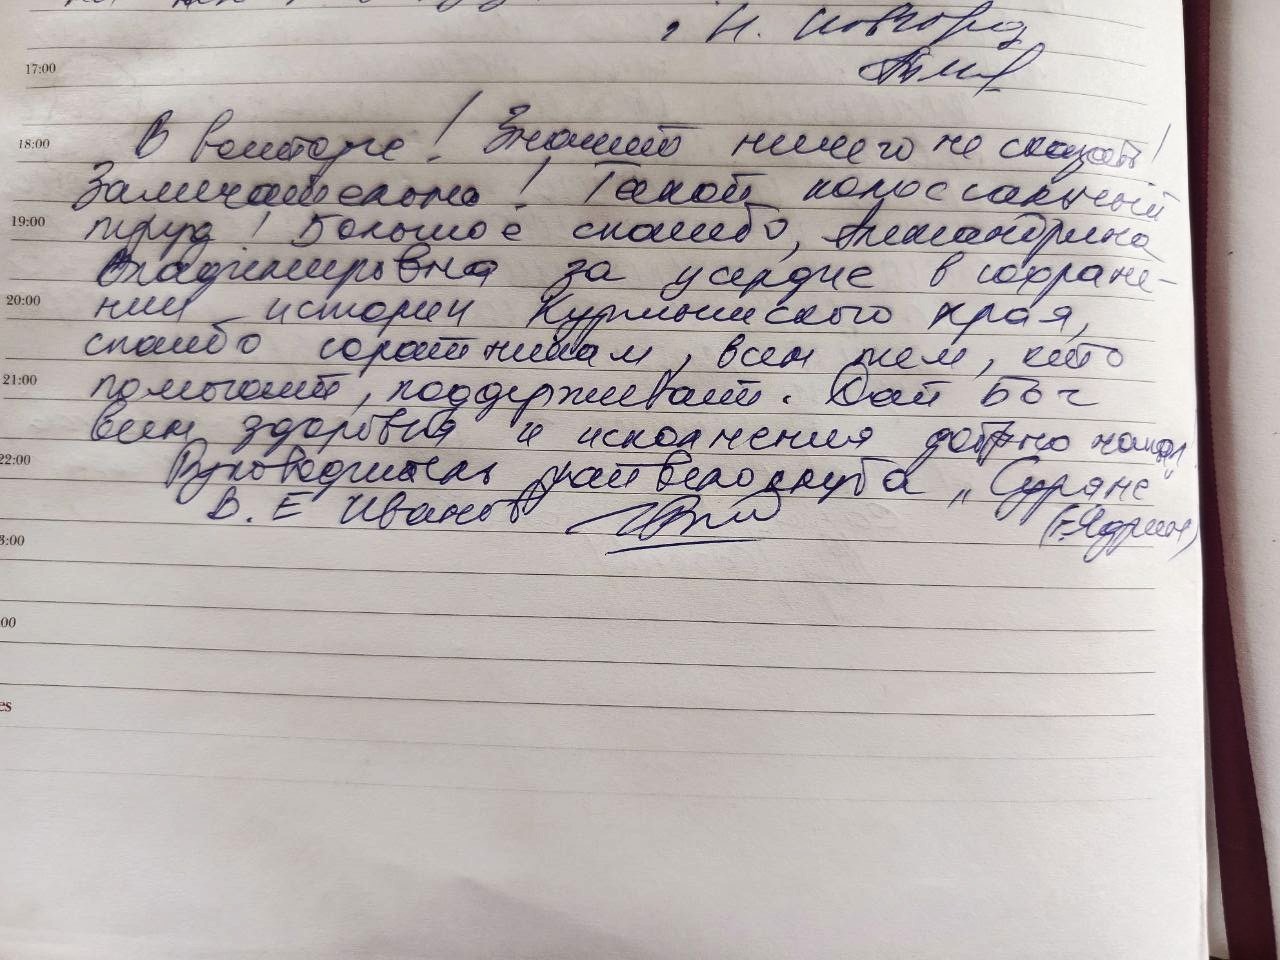 г. Н. Новгород
17:00
18:00
В восторге! Значит ничего не сказать!
Замечательно! Такой колоссальный
19:00
труд! Большое спасибо, Александрина
Владимировна за усердие в сохране-
20:00
нии истории Курмышского края,
спасибо соратникам, всем тем, кто
21:00
помогает, поддерживает. Дай Бог
всем здоровья и исполнения
22:00
Руководитель "Суряне"
В. Е Иванов (г. Ядрин)
3:00
00
es